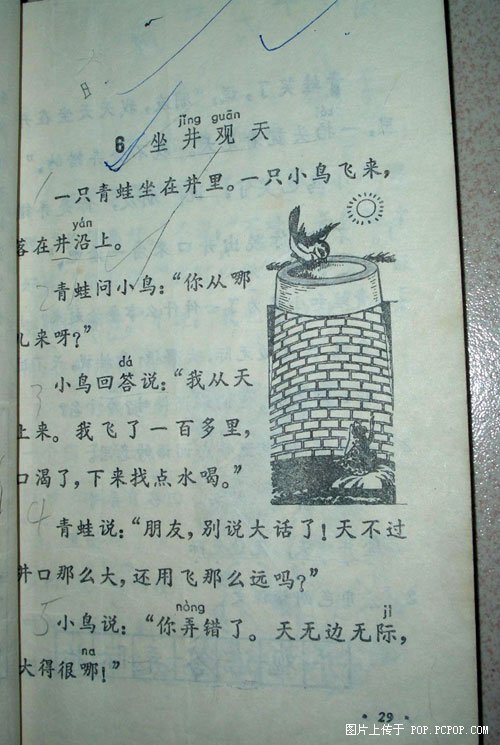 月
jǐng guān
6 坐井观天
一只青蛙坐在井里。一只小鸟飞来,
yán
落在井沿上。
2 青蛙问小鸟:“你从哪
儿来呀?”
dá
3 小鸟回答说:“我从天
上来。我飞了一百多里,
口渴了,下来找点水喝。”
4 青蛙说:“朋友,别说大话了!天不过
井口那么大,还用飞那么远吗?”
nòng jì
5 小鸟说:“你弄错了。天无边无际,
na
大得很哪!”
·29·
图片上传于 POP.PCPOP.COM